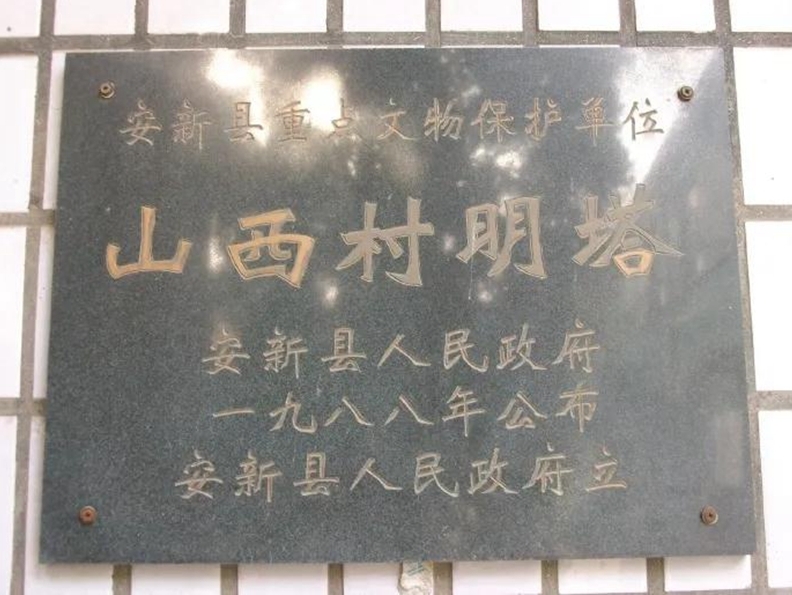 安新县重点文物保护单位
山西村明塔
安新县人民政府
一九八八年公布
安新县人民政府立